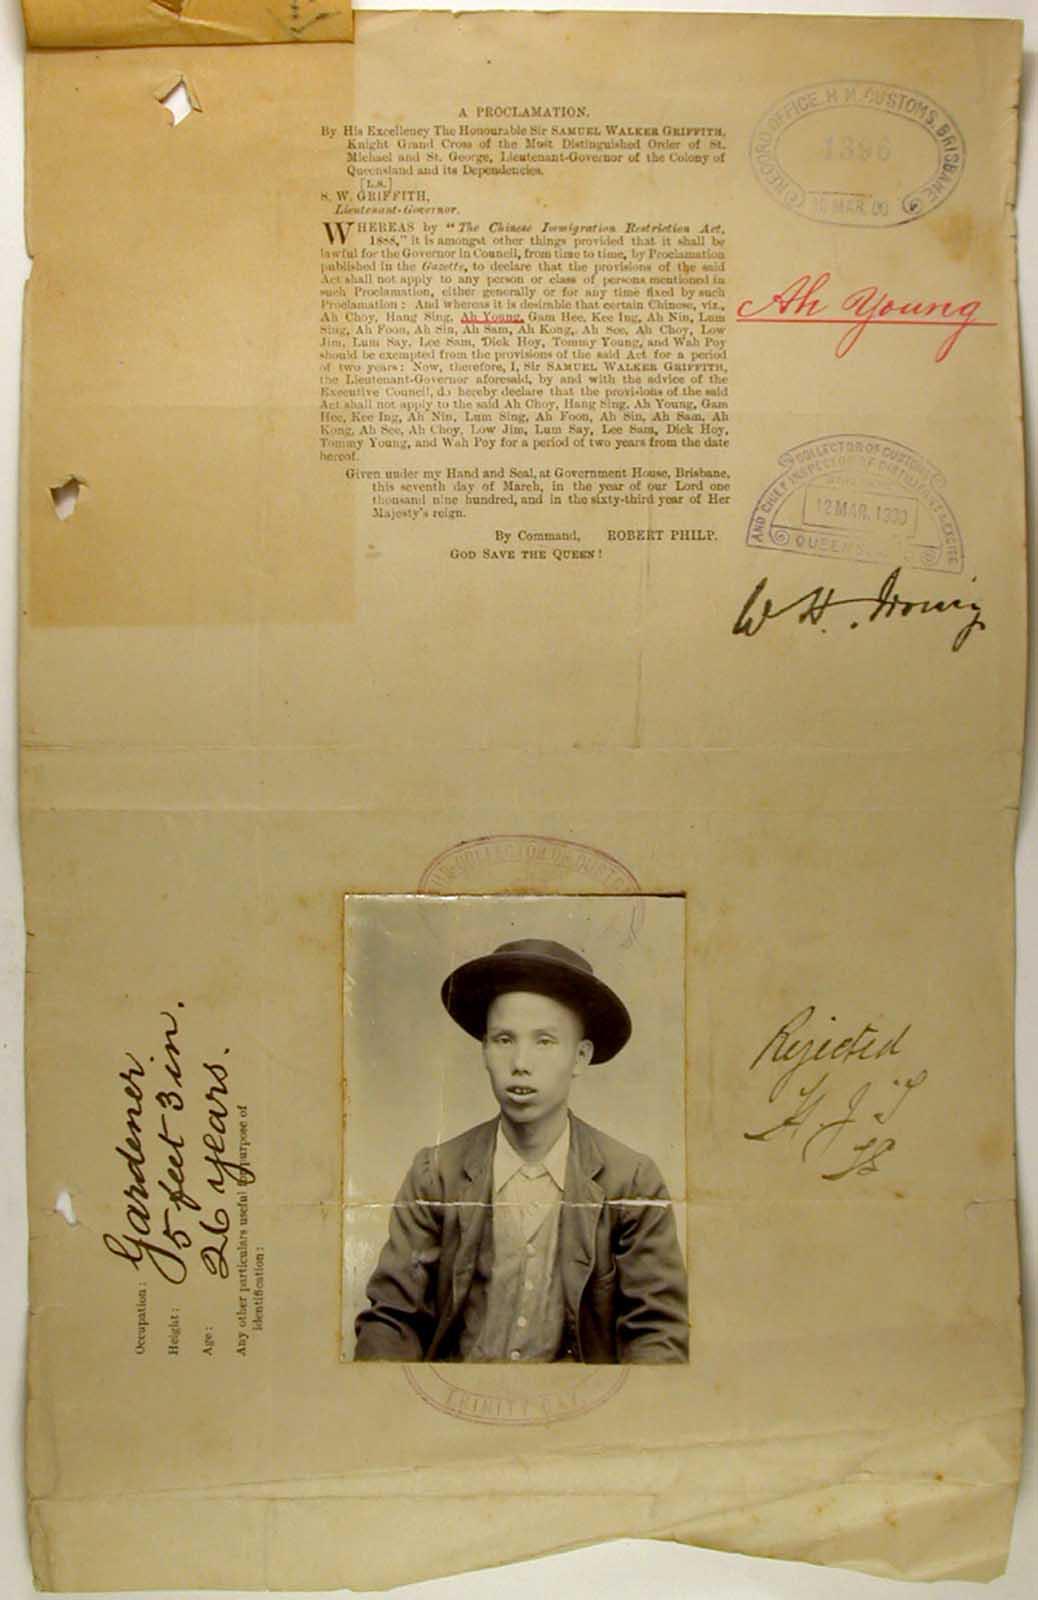 A PROCLAMATION.
By His Excellency The Honourable Sir SAMUEL WALKER GRIFFITH,
Knight Grand Cross of the Most Distinguished Order of St.
Michael and St. George, Lieutenant-Governor of the Colony of
Queensland and its Dependencies.
[L.S.]
S. W. GRIFFITH,
Lieutenant-Governor.
WHEREAS by "The Chinese Immigration Restriction Act,
1888," it is amongst other things provided that it shall be
lawful for the Governor in Council, from time to time, by Proclamation
published in the Gazette, to declare that the provisions of the said
Act shall not apply to any person or class of persons mentioned in
such Proclamation, either generally or for any time fixed by such
Proclamation: And whereas it is desirable that certain Chinese, viz.,
Ah Choy, Hang Sing, Ah Young, Gam Hee, Kee Ing, Ah Nin, Lum
Sing, Ah Foon, Ah Sin, Ah Sam, Ah Kong, Ah See, Ah Choy, Low
Jim, Lum Say, Lee Sam, Dick Hoy, Tommy Young, and Wah Poy
should be exempted from the provisions of the said Act for a period
of two years: Now, therefore, I, Sir SAMUEL WALKER GRIFFITH,
the Lieutenant-Governor aforesaid, by and with the advice of the
Executive Council, do hereby declare that the provisions of the said
Act shall not apply to the said Ah Choy, Hang Sing, Ah Young, Gam
Hee, Kee Ing, Ah Nin, Lum Sing, Ah Foon, Ah Sin, Ah Sam, Ah
Kong, Ah See, Ah Choy, Low Jim, Lum Say, Lee Sam, Dick Hoy,
Tommy Young, and Wah Poy for a period of two years from the date
hereof.
Given under my Hand and Seal, at Government House, Brisbane,
this seventh day of March, in the year of our Lord one
thousand nine hundred, and in the sixty-third year of Her
Majesty's reign.
By Command, ROBERT PHILP.
GOD SAVE THE QUEEN!
RECORD OFFICE, H. M. CUSTOMS, BRISBANE
1396
MAR. 00
Ah Young
COLLECTOR OF CUSTOMS
AND CHIEF INSPECTOR OF & EXCISE
12 MAR. 1900
W. H. Irving
SUB-COLLECTOR OF CUSTOMS
TRINITY BAY
Occupation: Gardener
Height: 5 feet 3 in.
Age: 26 years.
Any other particulars useful for purpose of
identification:
Rejected